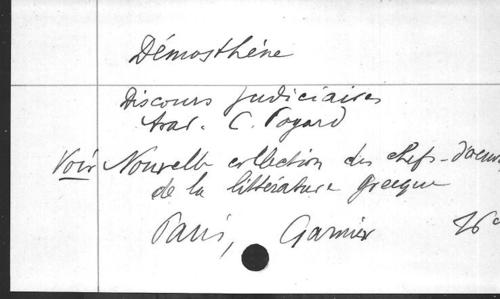 Démosthène
Discours judiciaires
trad. C. Poyard
Voir Nouvelle collection des chefs-d'oeuv
de la littérature grecque
Paris, Garnier